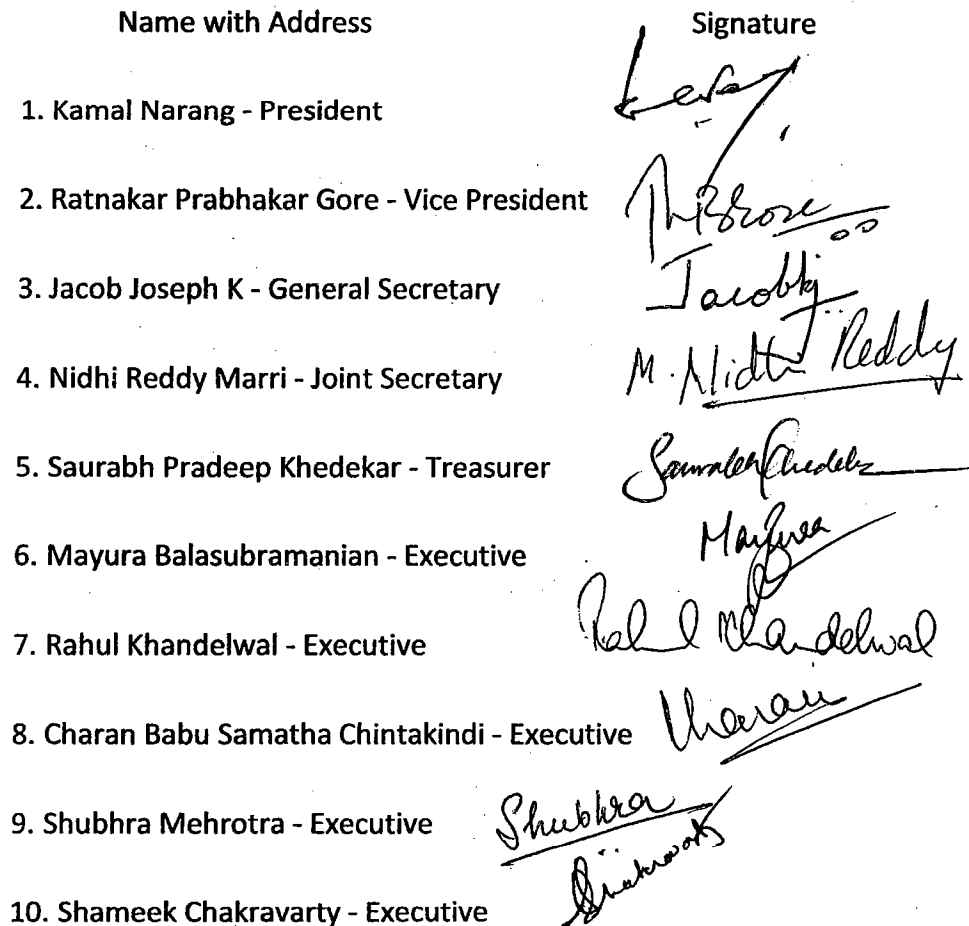 Name with Address Signature
1. Kamal Narang - President
2. Ratnakar Prabhakar Gore - Vice President
3. Jacob Joseph K - General Secretary Jacobkj
4. Nidhi Reddy Marri - Joint Secretary M. Nidhi Reddy
5. Saurabh Pradeep Khedekar - Treasurer
6. Mayura Balasubramanian - Executive Mayura
7. Rahul Khandelwal - Executive Rahul Khandelwal
8. Charan Babu Samatha Chintakindi - Executive Charan
9. Shubhra Mehrotra - Executive Shubhra
10. Shameek Chakravarty - Executive